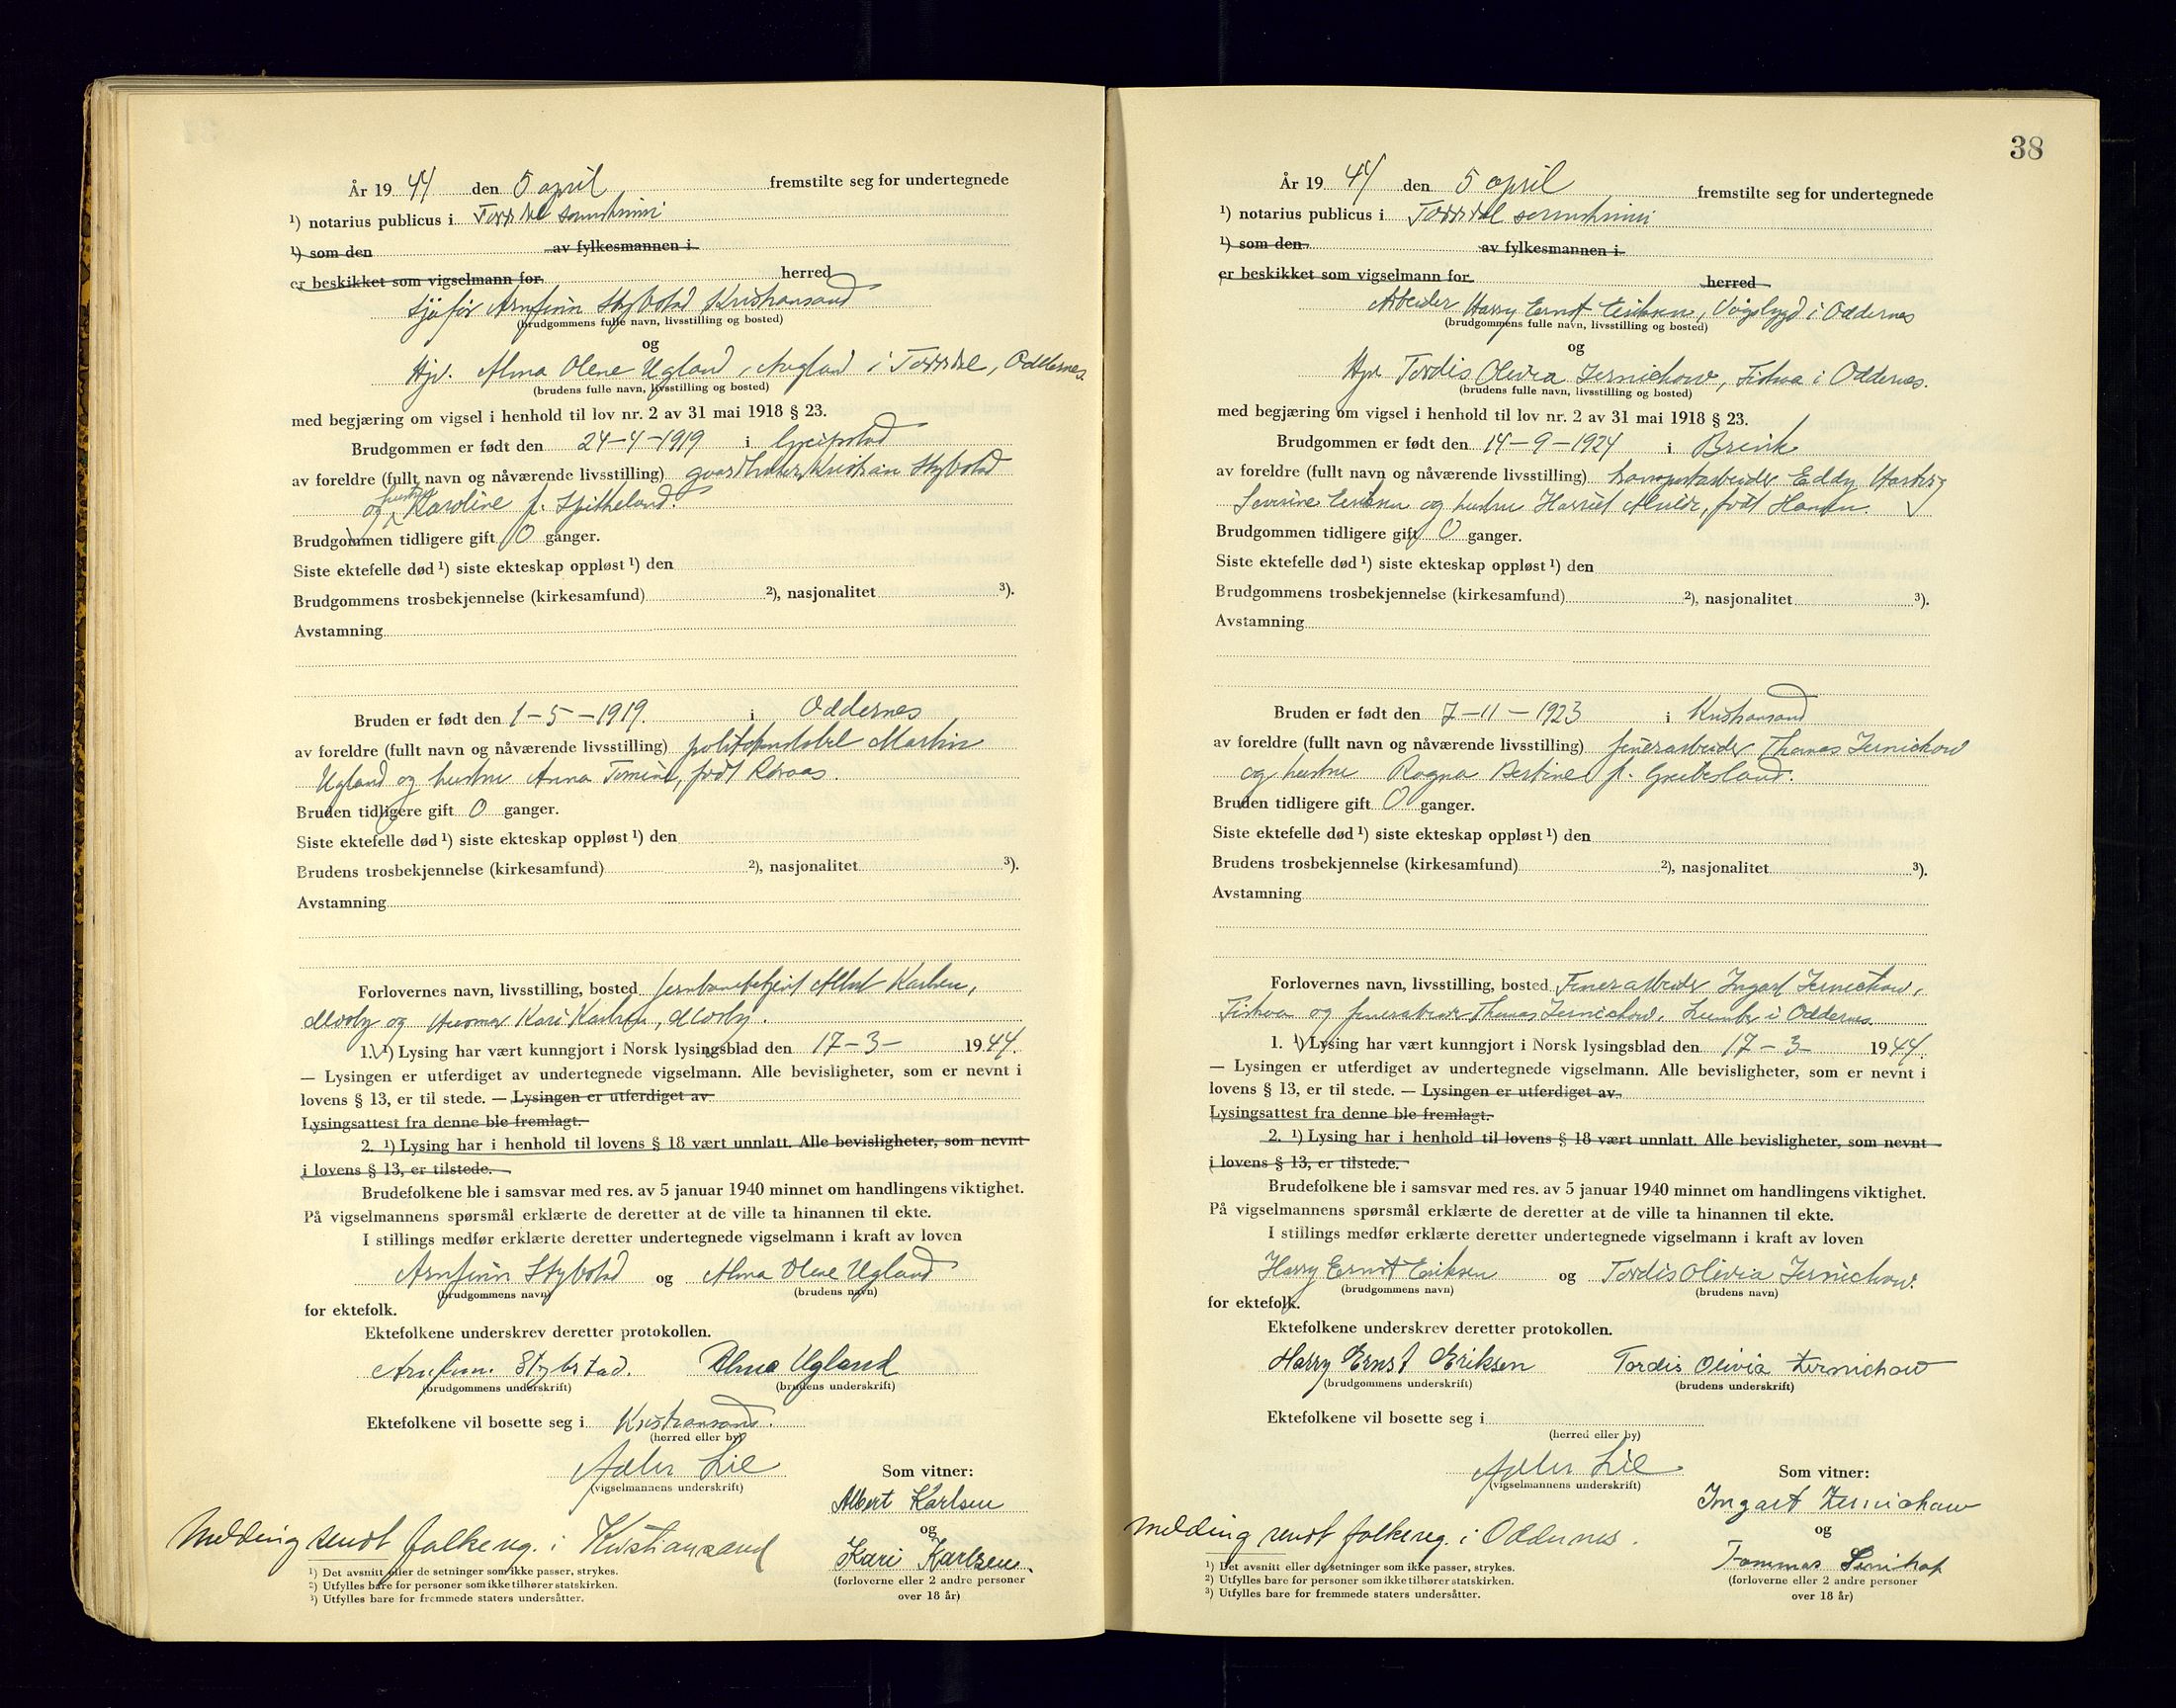 År 19 44 den 5 april fremstilte seg for undertegnede
¹) notarius publicus i Torridal sorenskriveri
¹) som den av fylkesmannen i
er beskikket som vigselmann for herred
Sjåfør Arnfinn Stybstad Kristiansand
(brudgommens fulle navn, livsstilling og bosted)
og
Hjv. Alma Olene Ugland, Augland i Torridal, Oddernes.
(brudens fulle navn, livsstilling og bosted)
med begjæring om vigsel i henhold til lov nr. 2 av 31 mai 1918 § 23.
Brudgommen er født den 24-4-1919 i Greipstad
av foreldre (fullt navn og nåværende livsstilling) gardbruker Kristian Stybstad
og hustru Karoline f. Spitheland.
Brudgommen tidligere gift 0 ganger.
Siste ektefelle død ¹) siste ekteskap oppløst ¹) den
Brudgommens trosbekjennelse (kirkesamfund) ²), nasjonalitet ³).
Avstamning
Bruden er født den 1-5-1919. i Oddernes
av foreldre (fullt navn og nåværende livsstilling) politikonstabel Martin
Ugland og hustru Anna Tomine, født
Bruden tidligere gift 0 ganger.
Siste ektefelle død ¹) siste ekteskap oppløst ¹) den
Brudens trosbekjennelse (kirkesamfund) ²), nasjonalitet ³).
Avstamning
Forlovernes navn, livsstilling, bosted jernbanebetjent Albert Karlsen,
Mosby og Kari Karlsen, Mosby.
1. ¹) Lysing har vært kunngjort i Norsk lysingsblad den 17-3- 1944.
— Lysingen er utferdiget av undertegnede vigselmann. Alle bevisligheter, som er nevnt i
lovens § 13, er til stede. — Lysingen er utferdiget av
Lysingsattest fra denne ble fremlagt.
2. ¹) Lysing har i henhold til lovens § 18 vært unnlatt. Alle bevisligheter, som nevnt
i lovens § 13, er tilstede.
Brudefolkene ble i samsvar med res. av 5 januar 1940 minnet om handlingens viktighet.
På vigselmannens spørsmål erklærte de deretter at de ville ta hinannen til ekte.
I stillings medfør erklærte deretter undertegnede vigselmann i kraft av loven
Arnfinn Stybstad og Alma Olene Ugland
(brudgommens navn) (brudens navn)
for ektefolk.
Ektefolkene underskrev deretter protokollen.
Arnfinn Stybstad. Alma Ugland
(brudgommens underskrift) (brudens underskrift)
Ektefolkene vil bosette seg i Kristiansand.
(herred eller by)
Adler Lie
(vigselmannens underskrift)
Som vitner:
Albert Karlsen
og
Kari Karlsen.
(forloverne eller 2 andre personer
over 18 år)
Melding sendt folkereg. i Kristiansand
¹) Det avsnitt eller de setninger som ikke passer, strykes.
²) Utfylles bare for personer som ikke tilhører statskirken.
³) Utfylles bare for fremmede staters undersåtter.
38
År 19 44 den 5 april fremstilte seg for undertegnede
¹) notarius publicus i Torridal sorenskriveri
¹) som den av fylkesmannen i
er beskikket som vigselmann for herred
Arbeider Harry Ernst Eriksen, Vågsbygd i Oddernes
(brudgommens fulle navn, livsstilling og bosted)
og
Hjv. Tordis Olivia Zernichow, Fiskaa i Oddernes.
(brudens fulle navn, livsstilling og bosted)
med begjæring om vigsel i henhold til lov nr. 2 av 31 mai 1918 § 23.
Brudgommen er født den 14-9-1924 i Brevik
av foreldre (fullt navn og nåværende livsstilling) transportarbeider Eddy Hartvig
Severine Eriksen og hustru Harriet Alvilde, født Hansen.
Brudgommen tidligere gift 0 ganger.
Siste ektefelle død ¹) siste ekteskap oppløst ¹) den
Brudgommens trosbekjennelse (kirkesamfund) ²), nasjonalitet ³).
Avstamning
Bruden er født den 7-11-1923 i Kristiansand
av foreldre (fullt navn og nåværende livsstilling) finerarbeider Thomas Zernichow
og hustru Ragna Bertine f. Greibesland.
Bruden tidligere gift 0 ganger.
Siste ektefelle død ¹) siste ekteskap oppløst ¹) den
Brudens trosbekjennelse (kirkesamfund) ²), nasjonalitet ³).
Avstamning
Forlovernes navn, livsstilling, bosted Finerarbeider Ingart Zernichow,
Fiskaa og finerarbeider Thomas Zernichow, i Oddernes.
1. ¹) Lysing har vært kunngjort i Norsk lysingsblad den 17-3- 1944.
— Lysingen er utferdiget av undertegnede vigselmann. Alle bevisligheter, som er nevnt i
lovens § 13, er til stede. — Lysingen er utferdiget av
Lysingsattest fra denne ble fremlagt.
2. ¹) Lysing har i henhold til lovens § 18 vært unnlatt. Alle bevisligheter, som nevnt
i lovens § 13, er tilstede.
Brudefolkene ble i samsvar med res. av 5 januar 1940 minnet om handlingens viktighet.
På vigselmannens spørsmål erklærte de deretter at de ville ta hinannen til ekte.
I stillings medfør erklærte deretter undertegnede vigselmann i kraft av loven
Harry Ernst Eriksen og Tordis Olivia Zernichow.
(brudgommens navn) (brudens navn)
for ektefolk.
Ektefolkene underskrev deretter protokollen.
Harry Ernst Eriksen Tordis Olivia Zernichow
(brudgommens underskrift) (brudens underskrift)
Ektefolkene vil bosette seg i
(herred eller by)
Adler Lie
(vigselmannens underskrift)
Som vitner:
Ingart Zernichow
og
Tommas
(forloverne eller 2 andre personer
over 18 år)
Melding sendt folkereg. i Oddernes.
¹) Det avsnitt eller de setninger som ikke passer, strykes.
²) Utfylles bare for personer som ikke tilhører statskirken.
³) Utfylles bare for fremmede staters undersåtter.